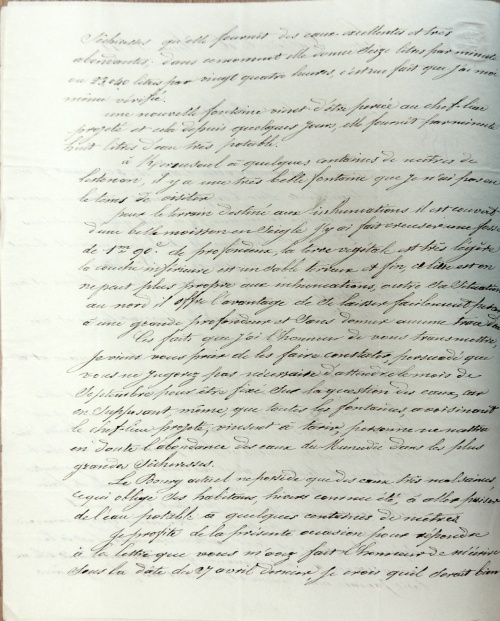 Sécheresses qu'elle fournit des eaux excellentes et très
abondantes: dans ce moment elle donne seize litres par minute
ou 23.040 litres par vingt quatre heures, c'est un fait que j'ai moi
même vérifié.
une nouvelle fontaine vient d'être percée au chef-lieu
projeté et cela depuis quelques jours, elle fournit par minute
huit litres d'eau très potable.
à quelques centaines de mètres de
il y a une très belle fontaine que je n'ai pas eu
le tems de visiter.
pour le terrain destiné aux inhumations il est couvert
d'une belle moisson en Seigle j'y ai fait creuser une fosse
de 1m 90c de profondeur, la terre végétale est très légère
la couche inférieure est un sable terreux et fin, et elle est on
ne peut plus propre aux inhumations, outre sa situation
au nord il offre l'avantage de se laisser facilement
à une grande profondeur et sans donner aucune trace
Ces faits que j'ai l'honneur de vous transmettre,
je viens vous prier de les faire constater, persuadé que
vous ne jugerez pas nécessaire d'attendre le mois de
Septembre pour être fixé sur la question des eaux, car
en supposant même, que toutes les fontaines, avoisinant
le chef-lieu projeté, vinssent à tarir, personne ne mettra
en doute l'abondance des eaux du dans les plus
grandes Sécheresses.
Le Bourg actuel ne possède que des eaux très malsaines,
ce qui oblige ses habitans, hivers comme été, à aller puiser
de l'eau potable à quelques centaines de mètres.
Je profite de la présente occasion pour répondre
à la lettre que vous m'avez fait l'honneur de m'écrire
sous la date du 27 avril dernier je crois qu'il serait bien